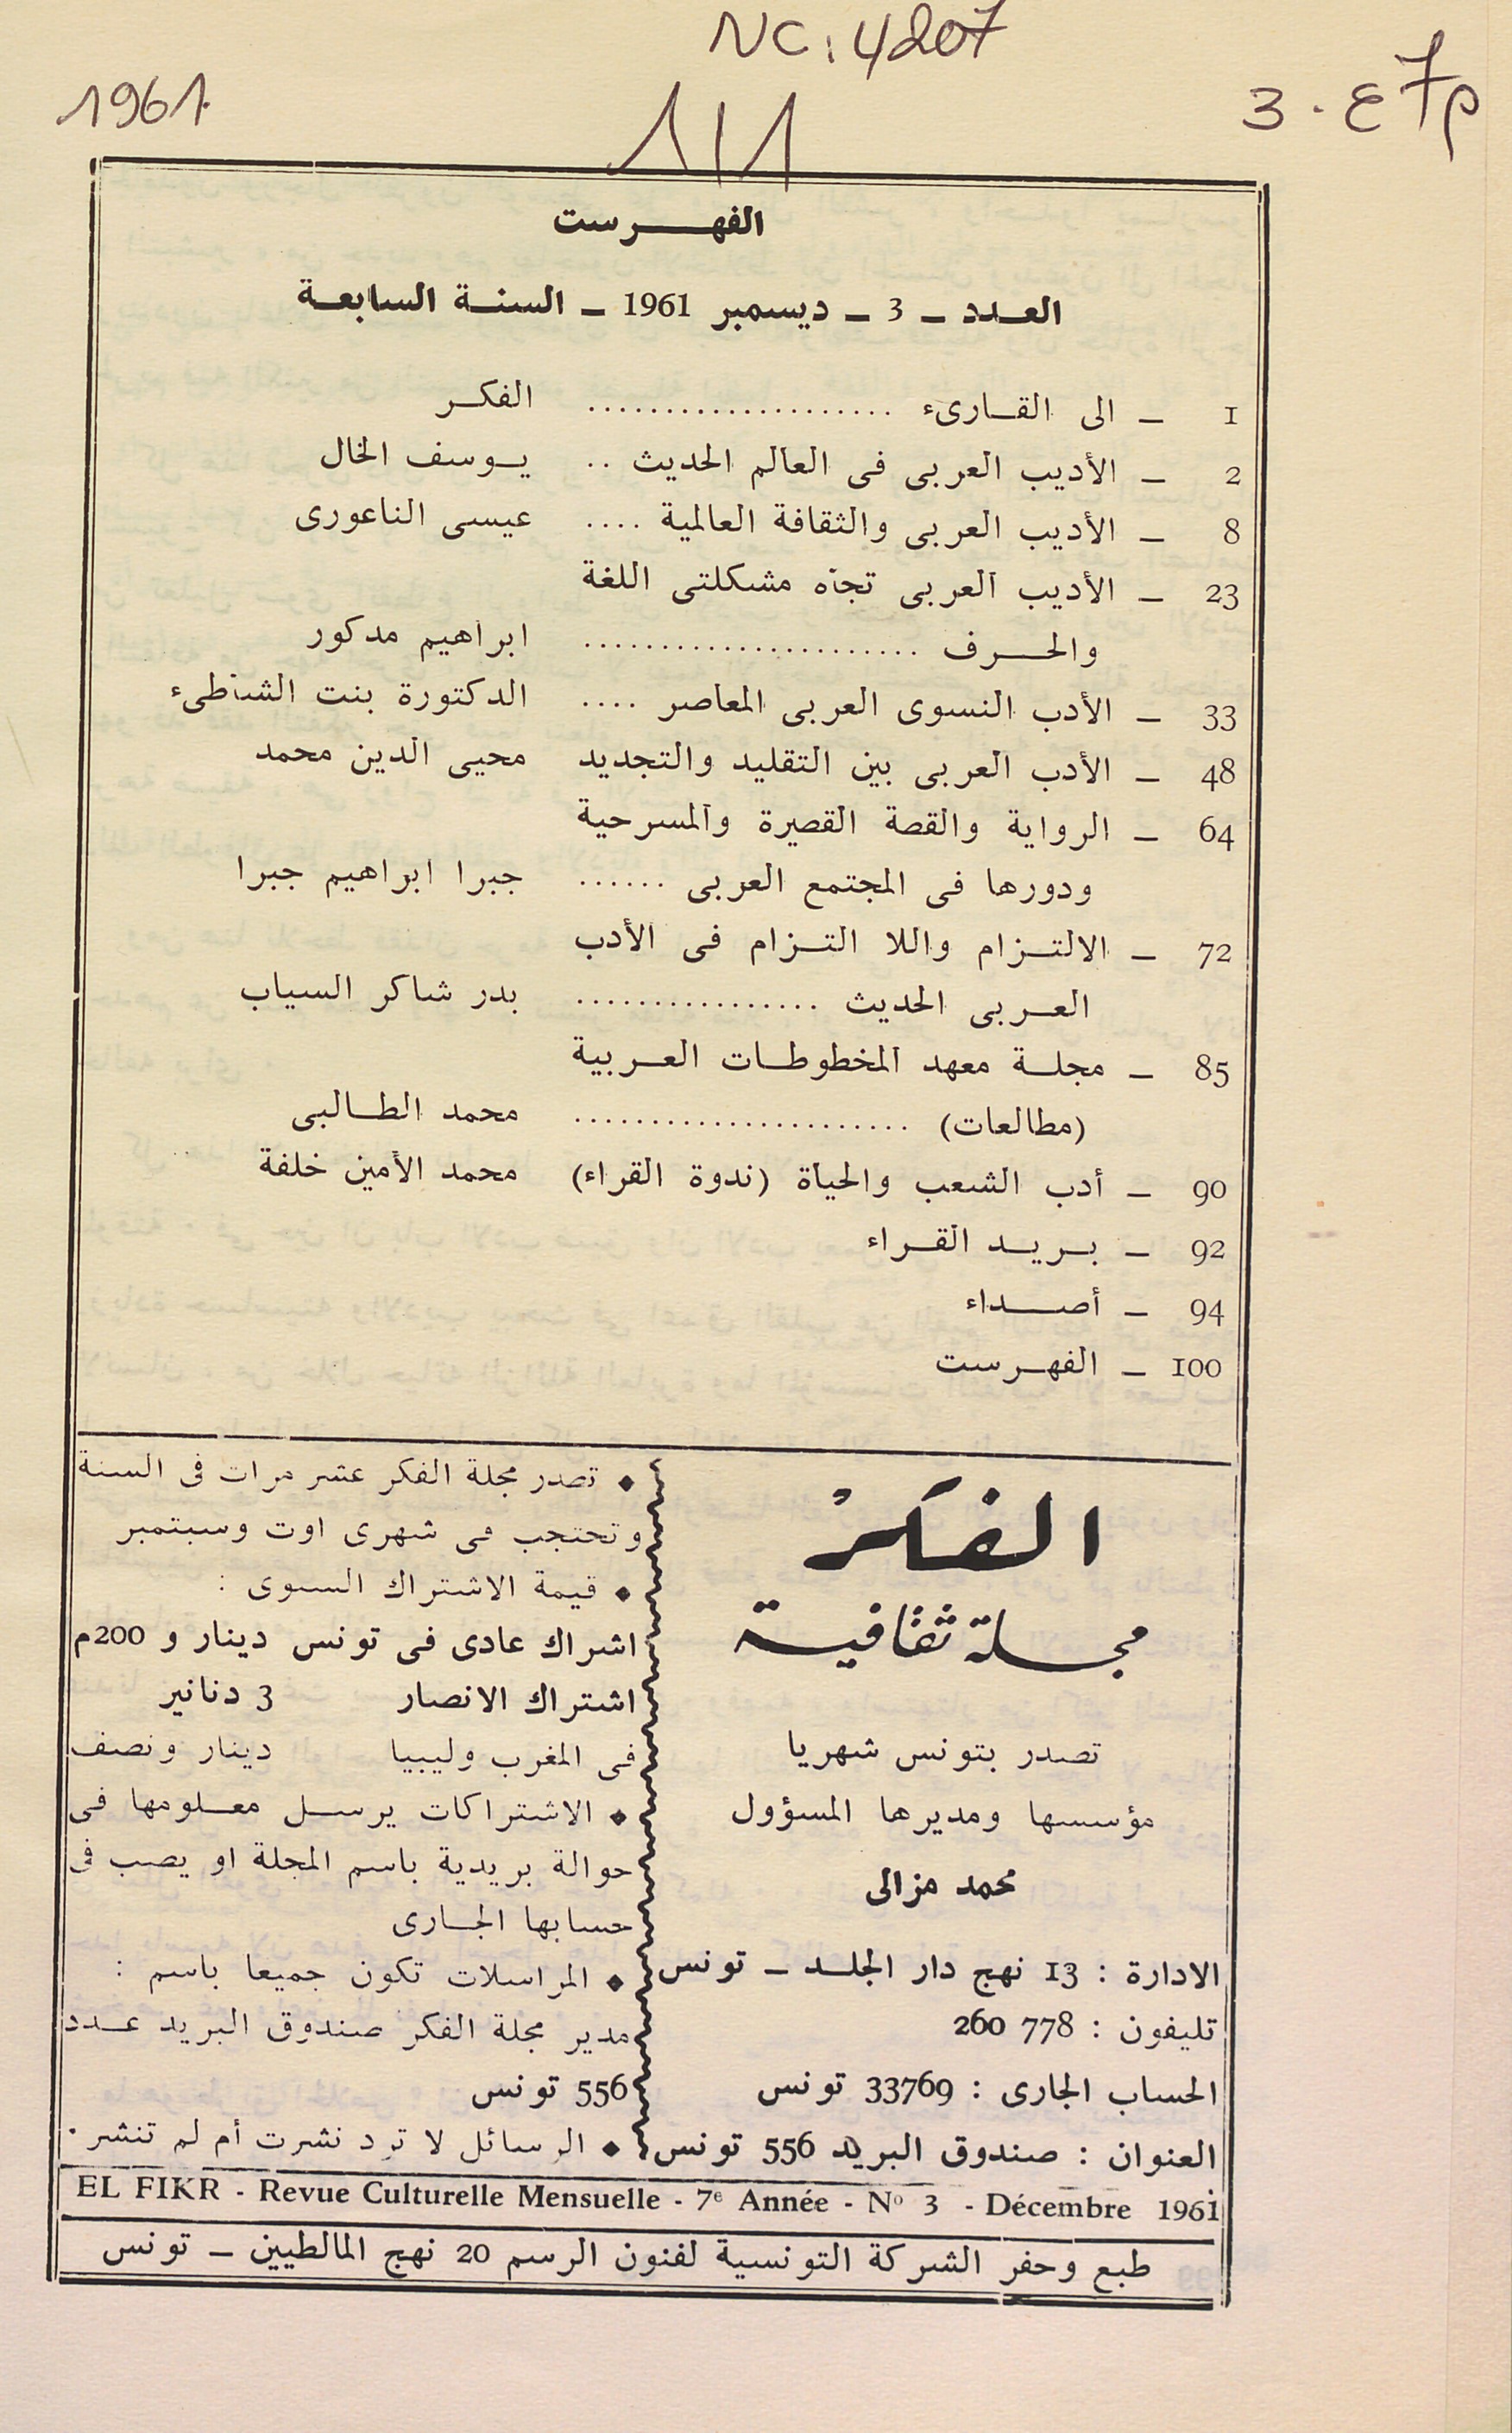 NC: 4207
1961
م7 ع. 3
111
الفهرست
العدد – 3 – ديسمبر 1961 – السنة السابعة
1 – الى القارىء .................... الفكر
2 – الأديب العربى فى العالم الحديث .. يوسف الخال
8 – الأديب العربى والثقافة العالمية .... عيسى الناعورى
23 – الأديب العربى تجاه مشكلتى اللغة
والحرف ...................... ابراهيم مدكور
33 – الأدب النسوى العربى المعاصر .... الدكتورة بنت الشاطىء
48 – الأدب العربى بين التقليد والتجديد محيى الدين محمد
64 – الرواية والقصة القصيرة والمسرحية
ودورها فى المجتمع العربى ...... جبرا ابراهيم جبرا
72 – الالتزام واللا التزام فى الأدب
العربى الحديث ................ بدر شاكر السياب
85 – مجلة معهد المخطوطات العربية
(مطالعات) ...................... محمد الطالبى
90 – أدب الشعب والحياة (ندوة القراء) محمد الأمين خلفة
92 – بريد القراء
94 – أصداء
100 – الفهرست
الفكر
مجلة ثقافية
تصدر بتونس شهريا
مؤسسها ومديرها المسؤول
محمد مزالى
الادارة : 13 نهج دار الجلد – تونس
تليفون : 778 260
الحساب الجارى : 33769 تونس
العنوان : صندوق البريد 556 تونس
♦ تصدر مجلة الفكر عشر مرات فى السنة
وتحتجب فى شهرى اوت وسبتمبر
♦ قيمة الاشتراك السوى :
اشراك عادى فى تونس دينار و 200م
اشتراك الانصار 3 دنانير
فى المغرب وليبيا دينار ونصف
♦ الاشتراكات يرسل معلومها فى
حوالة بريدية باسم المجلة او يصب فى
حسابها الجارى
♦ المراسلات تكون جميعا باسم :
مدير مجلة الفكر صندوق البريد عدد
556 تونس
♦ الرسائل لا ترد نشرت أم لم تنشر .
EL FIKR - Revue Culturelle Mensuelle - 7e Année - No 3 - Décembre 1961
طبع وحفر الشركة التونسية لفنون الرسم 20 نهج المالطيين – تونس